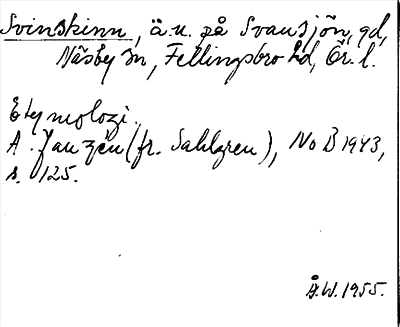 Svinskinn, ä.u. på Svansjön, gd,
Näsby sn, Fellingsbro hd, Ör. l.
Etymologi.
A. Janzén (fr. Sahlgren), NoB 1943,
s. 125.
Å.W. 1955.